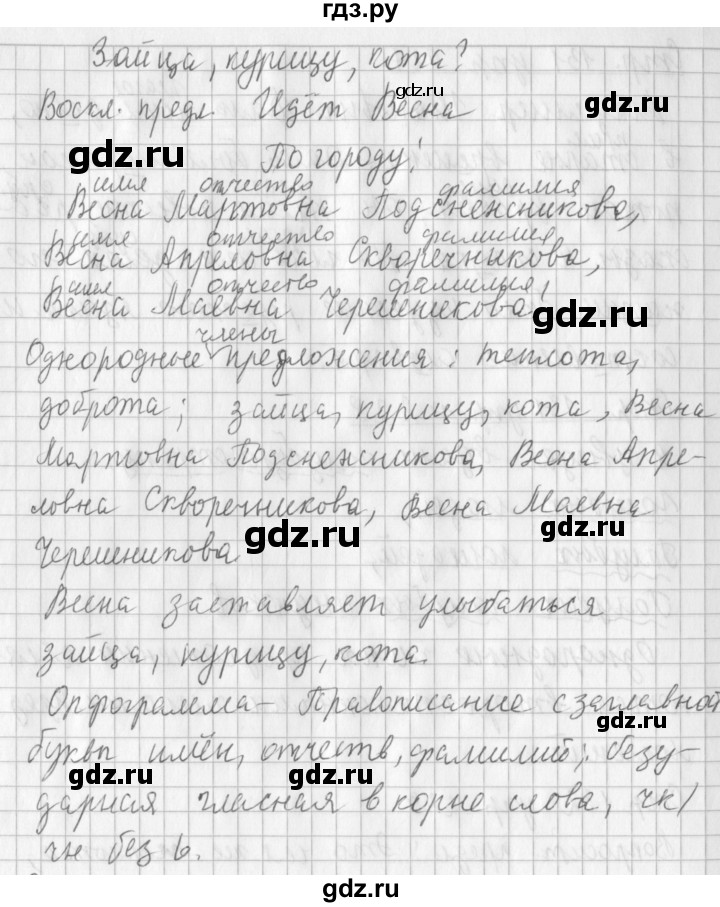 гдз.ру
Зайца, курицу, кота?
gdz.ru
Воскл. предл. Идёт Весна
gdz.ru
gdz.ru
По городу!
имя отчество фамилия
Весна Мартовна Подснежникова,
имя отчество фамилия
Весна Апреловна Скворечникова,
имя отчество фамилия
Весна Маевна Черешникова!
gdz.ru
члены
Однородные предложения: теплота,
gdz.ru
доброта; зайца, курицу, кота, Весна
Мартовна Подснежникова, Весна Апре-
ловна Скворечникова, Весна Маевна
gdz.ru
gdz.ru
Черешникова
Весна заставляет улыбаться
зайца, курицу, кота.
Орфограмма – Правописание с заглавной
gdz.ru
буквы имён, отчеств, фамилий; безу-
gdz.ru
gdz.ru
gdz.ru
дарная гласная в корне слова, чк/
чн без ь.
gdz.ru